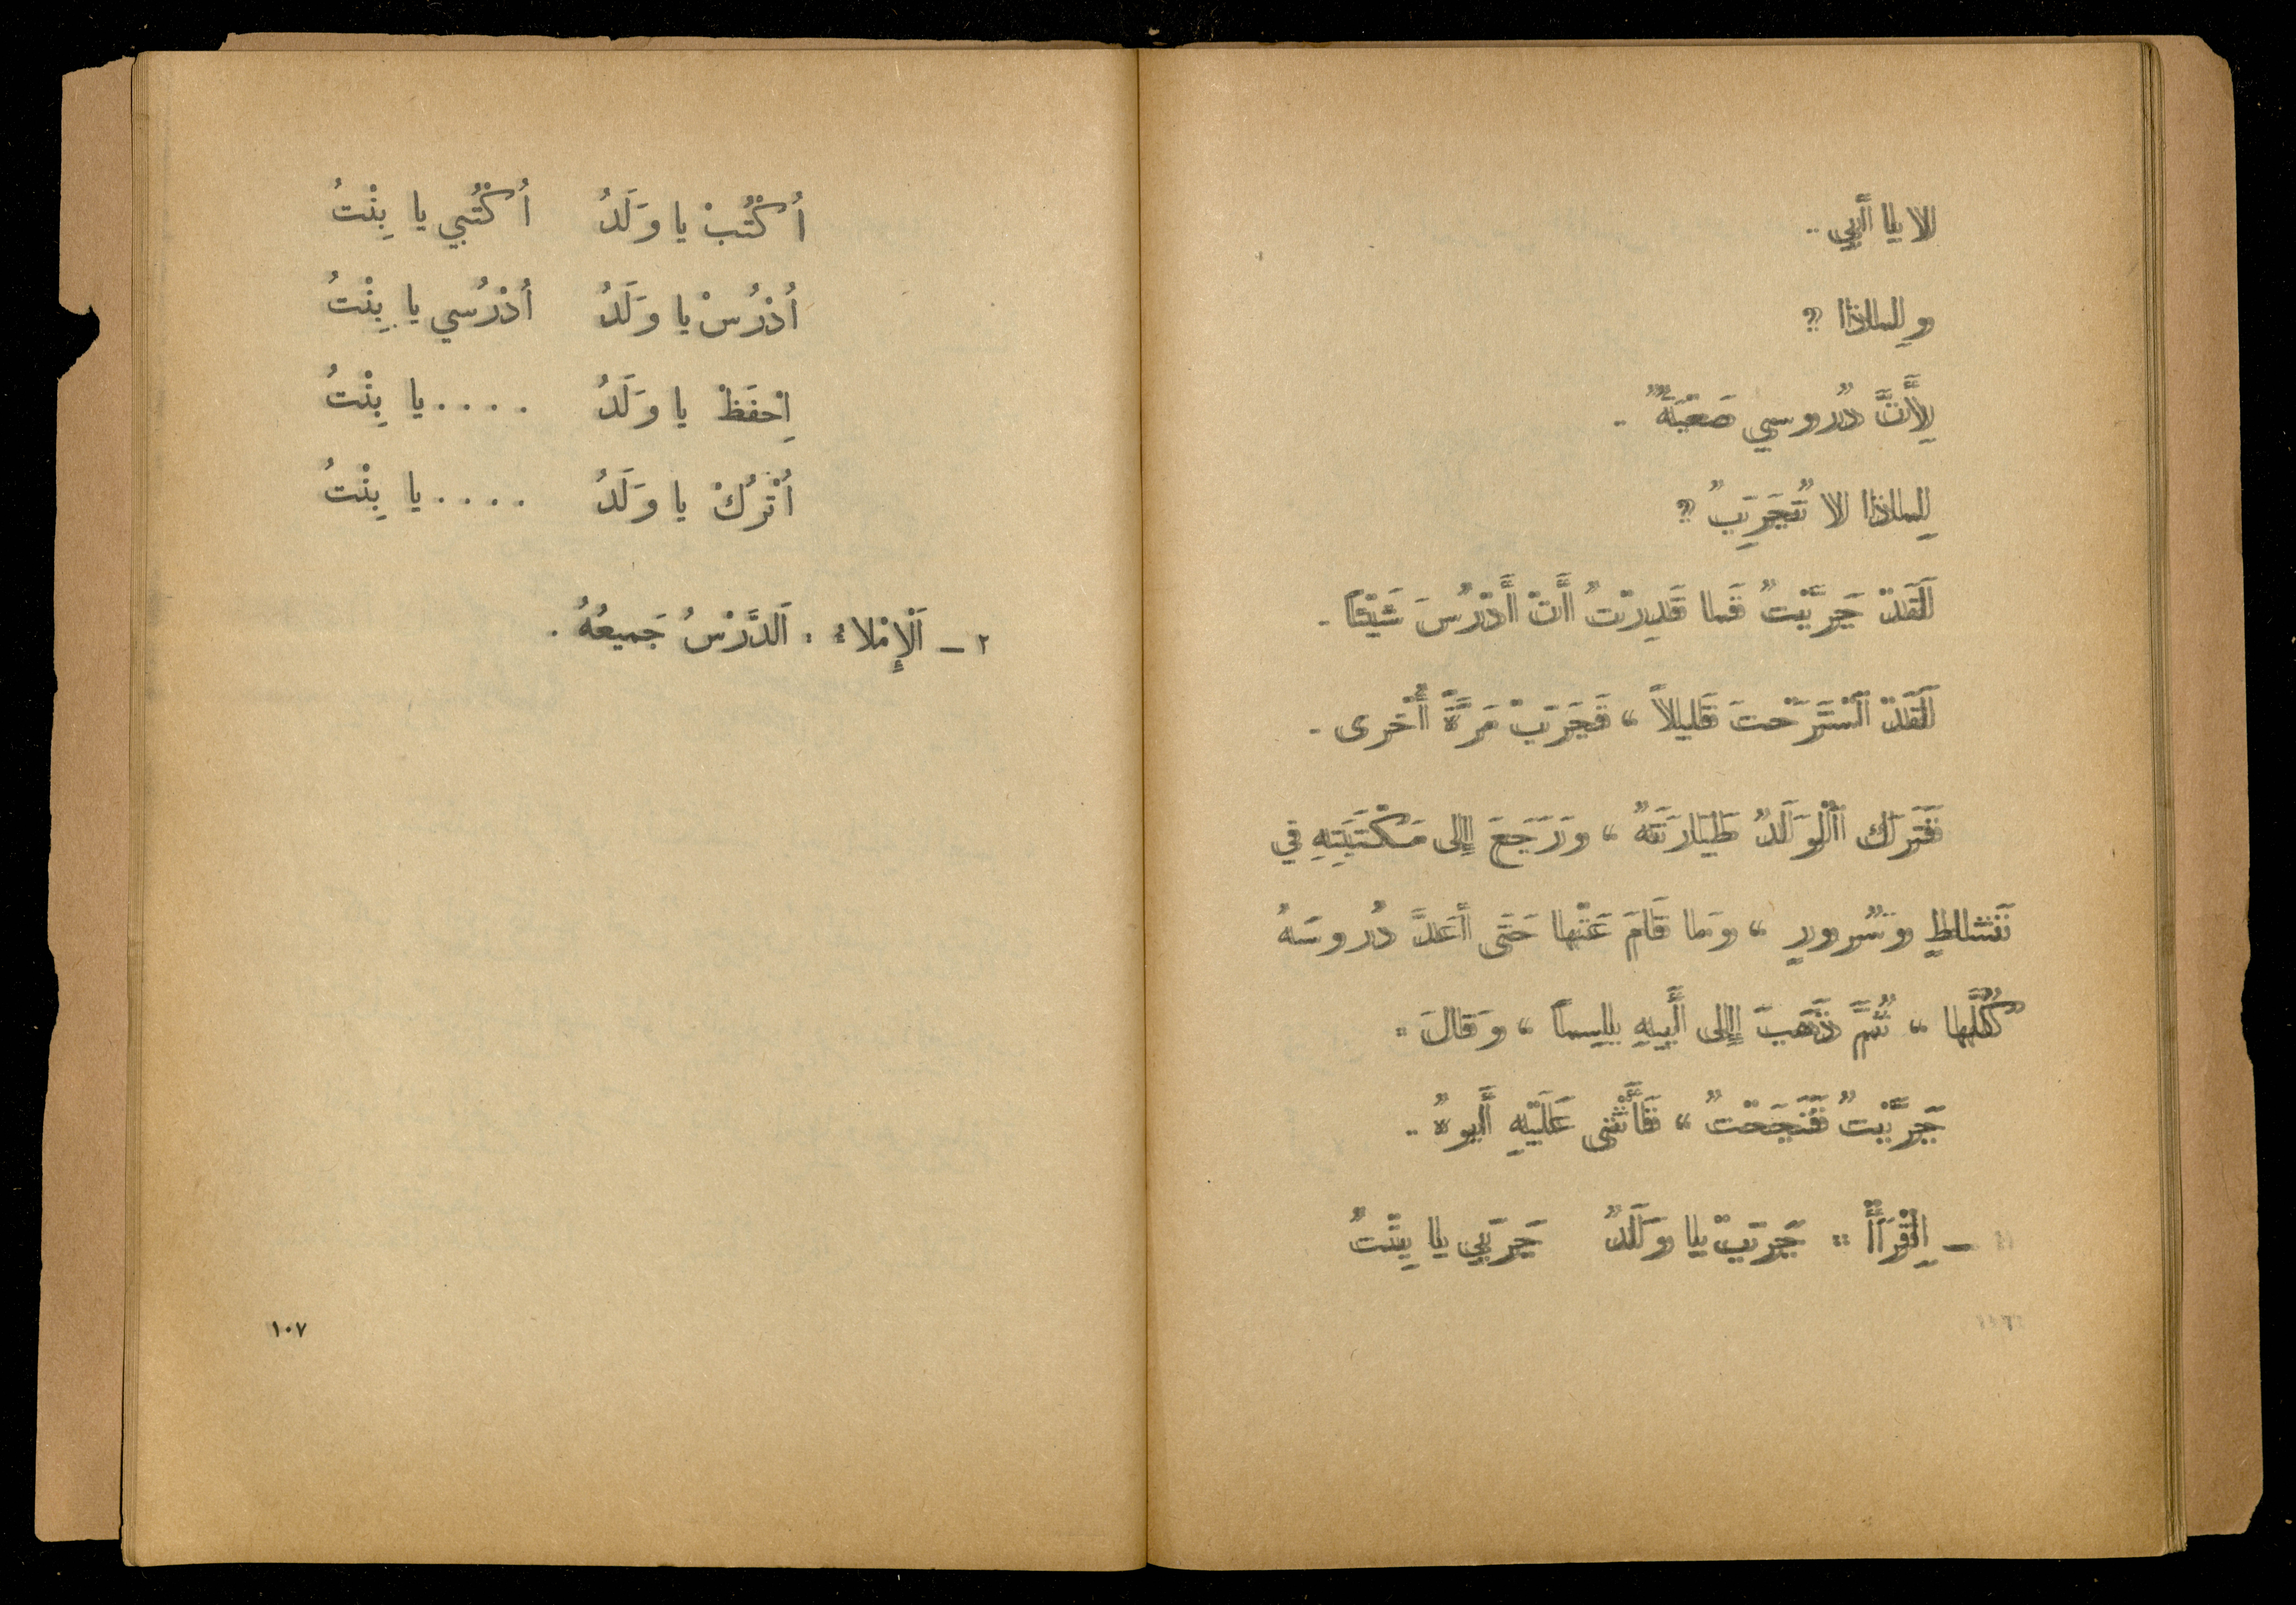 لا يا أَبي .
ولِماذا ؟
لِأَنَّ دُروسي صَعْبَةٌ .
لِماذا لا تُجَرِّبُ ؟
لَقَدْ جَرَّبْتُ فَما قَدِرْتُ أَنْ أَدْرُسَ شَيْئًا .
لَقَدْ اَسْتَرَحْتَ قَليلاً ، فَجَرِّبْ مَرَّةً أُخْرى .
فَتَرَكَ اَلْوَلَدُ طَيّارَتَهُ ، ورَجَعَ إِلى مَكْتَبَتِهِ في
نَشاطٍ وسُرورٍ ، وَما قَامَ عَنْها حَتّى أَعَدَّ دُروسَهُ
كُلَّها ، ثُمَّ ذَهَبَ إِلى أَبيهِ باسِماً ، وَقالَ :
جَرَّبْتُ فَنَجَحْتُ ، فَأَثْنى عَلَيْهِ أَبوهُ .
١ ـ اِقْرَأْ : جَرِّبْ يا وَلَدُ جَرِّبي يا بِنْتُ
أُكْتُبْ يا وَلَدُ أُكْتُبي يا بِنْتُ
أُدْرُسْ يا وَلَدُ أُدْرُسي يا بِنْتُ
اِحْفَظْ يا وَلَدُ . . . . يا بِنْتُ
أُتْرُكْ يا وَلَدُ . . . . يا بِنْتُ
٢ ـ اَلْإِمْلاءُ : اَلدَّرْسُ جَميعُهُ .
١٠٧